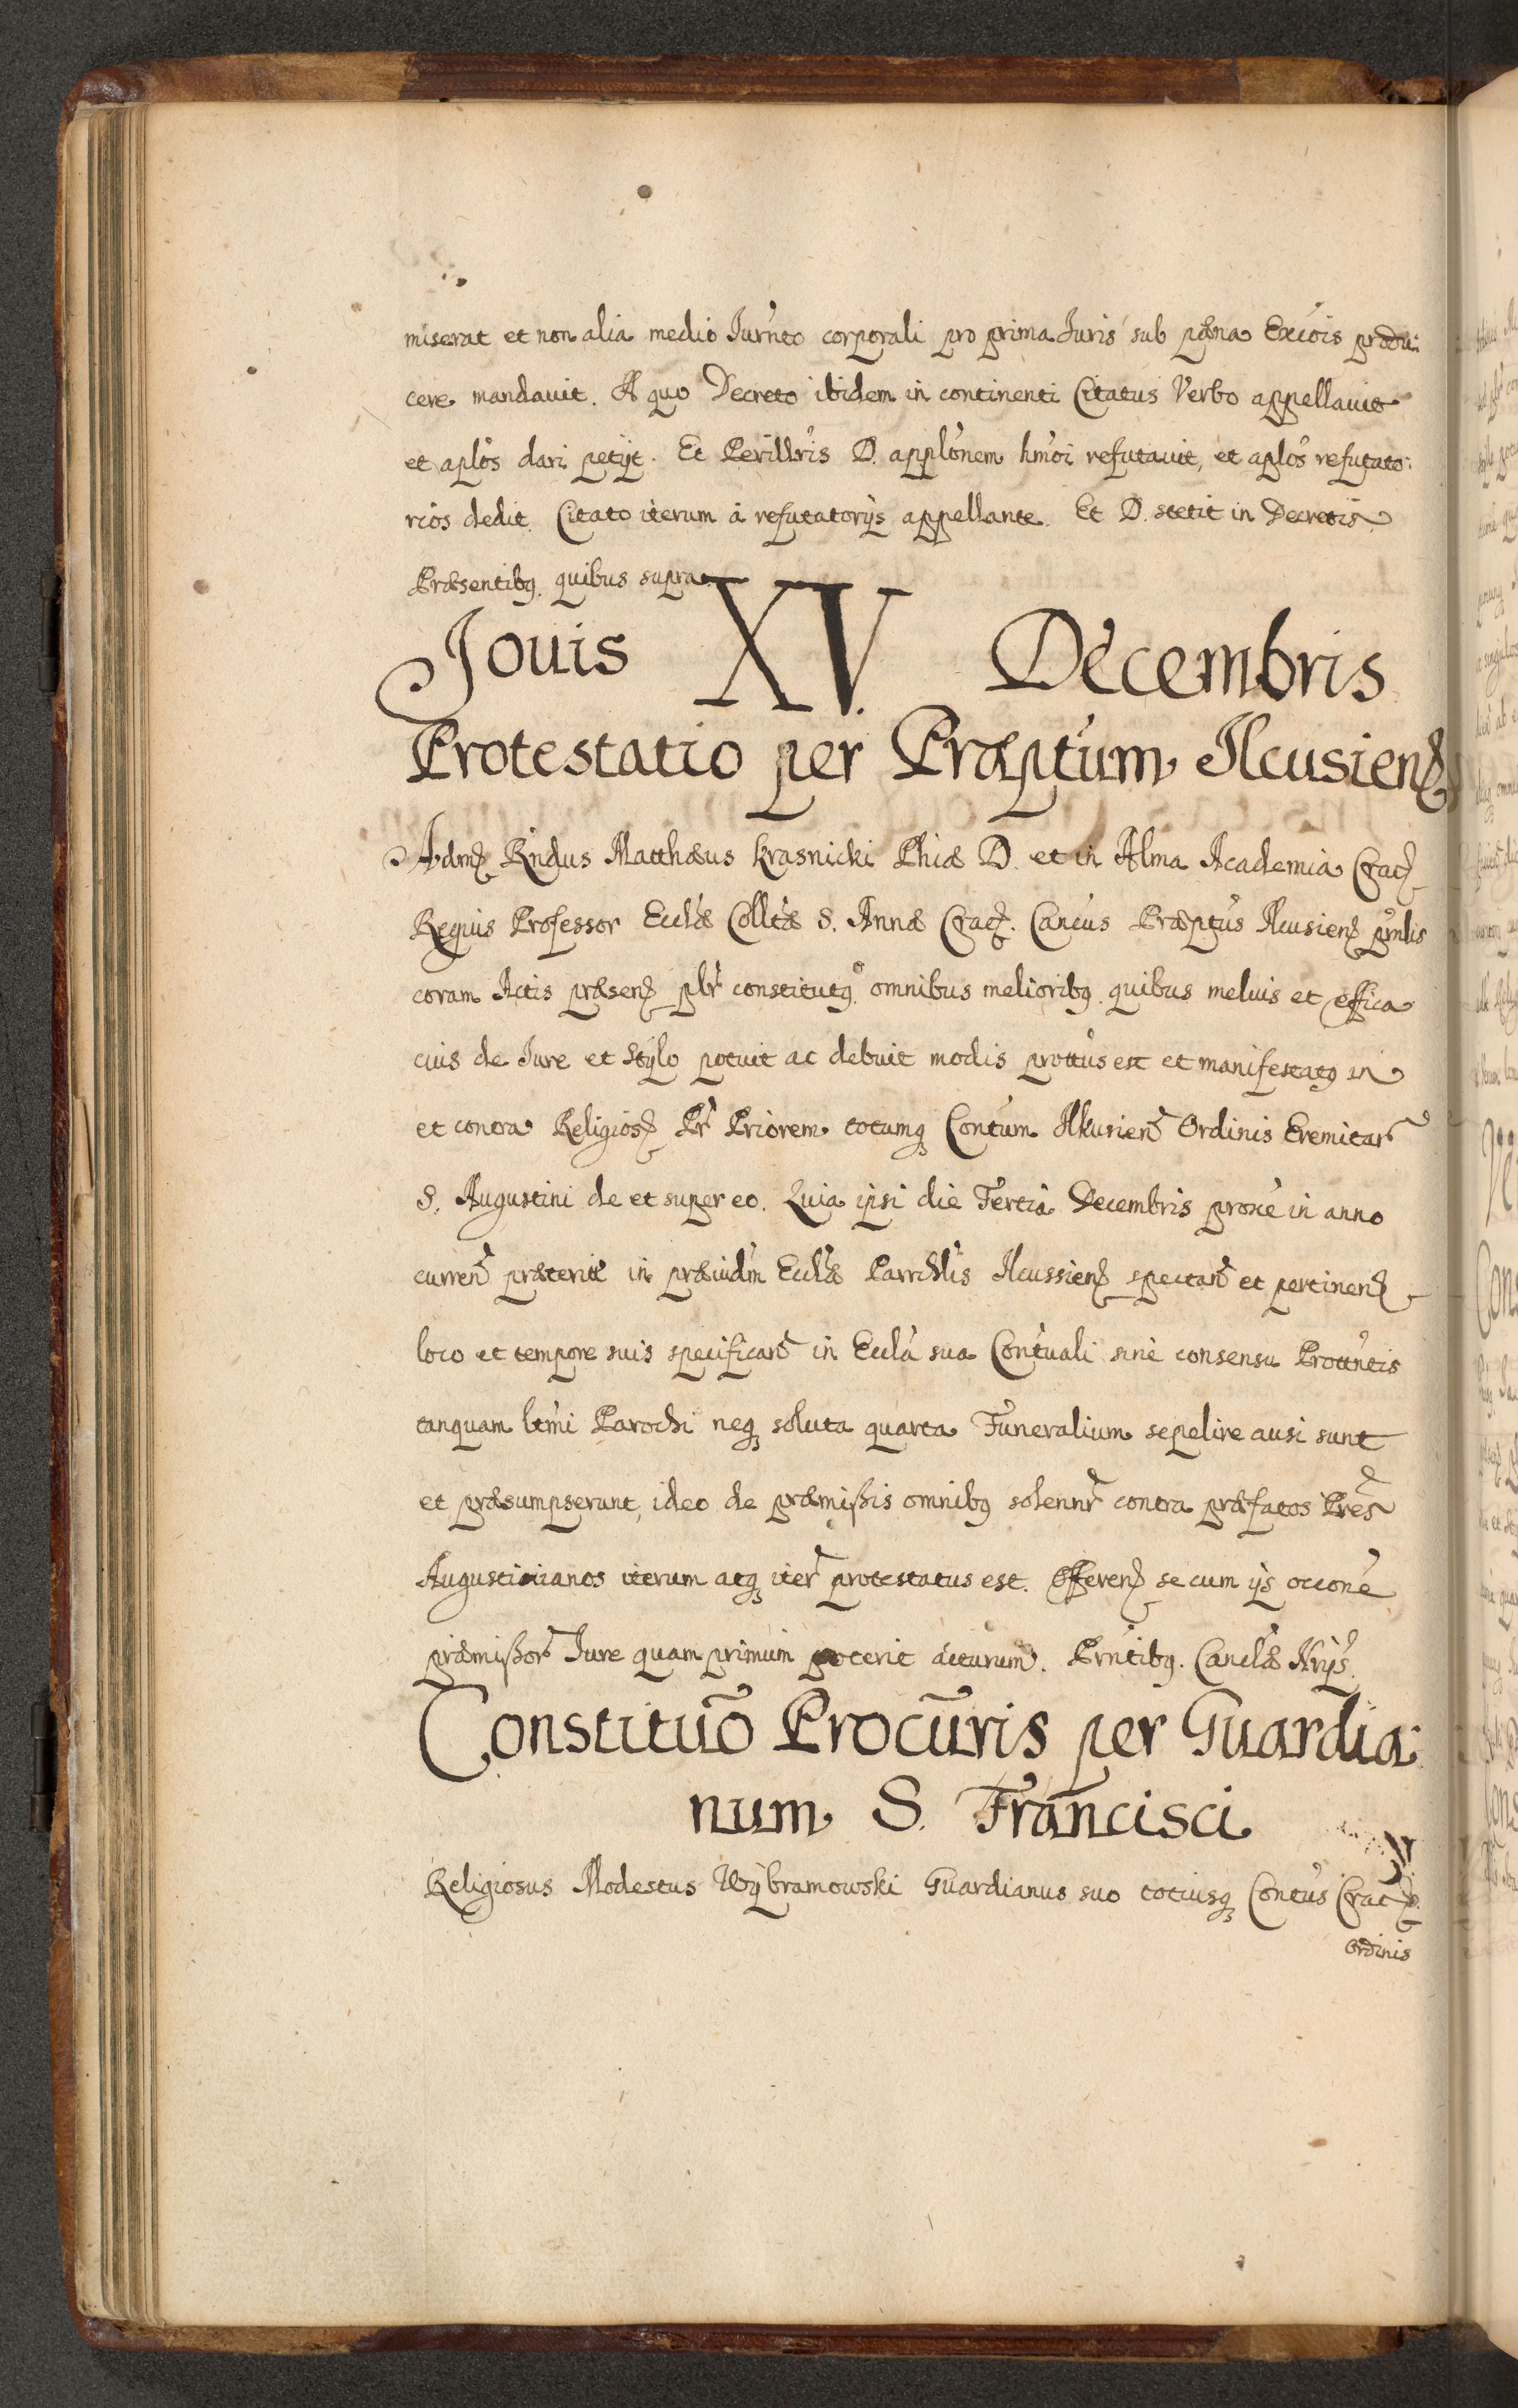 miserat et non alia medio Jur̃nto corporali pro prima Juris sub pæna Excõis produ:
cere mandauit. A quo Decreto ibidem in continenti Citatus Verbo appellauit
et aplõs dari petijt. Et Perillũris D. applõnem hm̃oi refutauit, et aplõs refutato:
rios dedit. Citato iterum à refutatorijs appellante. Et D. stetit in Decretis
Præsentibꝰ quibus supra.
Jouis XV. Decembris
Protestatio per Præptũm Ilcusienꝭ
Admꝭ Rñdus Matthæus Krasnicki Phiæ D. et in Alma Academia Cracꝭ
Regius Professor Ecclæ̃ Colltæ̃ S. Annæ Cracꝭ. Canc̃us Præptũs Ilcusienꝭ pr̃nlis
coram Actis præsenꝭ plr̃ constitutꝰ omnibus melioribꝰ quibus melius et effica
cius de Jure et Stylo potuit ac debuit modis prottũs est et manifestatꝰ in
et contra Religiosꝭ Pr̃ Priorem totumqꝫ Contũm Ilkusien̄ Ordinis Eremitar̃
S. Augustini de et super eo. Quia ipsi die Tertia Decembris proxẽ in anno
curren̄ præteritæ in præiudm̃ Ecclæ̃ Parrchlĩs Ilcussienꝭ spectan̄ et pertinenꝭ
loco et tempore suis specifican̄ in Ecclã sua Contũali sinè consensu Prottñtis
tanquam ltm̃i Parochi neqꝫ soluta quarta Funeralium sepelire ausi sunt
et præsumpserunt, ideo de præmißis omnibꝰ solennr̃ contra præfatos Prẽs
Augustinianos iterum atqꝫ iter̃ protestatus est. Offerenꝭ se cum ijs occonẽ
præmißor̃ Jure quam primum poterit acturum. Prñtibꝰ. Canclæ̃ Nrijs̃.
Constituõ Procũris per Guardia:
num S. Francisci
Religiosus Modestus Wybramowski Guardianus suo totiusqꝫ Contũs Cracꝭ
Ordinis